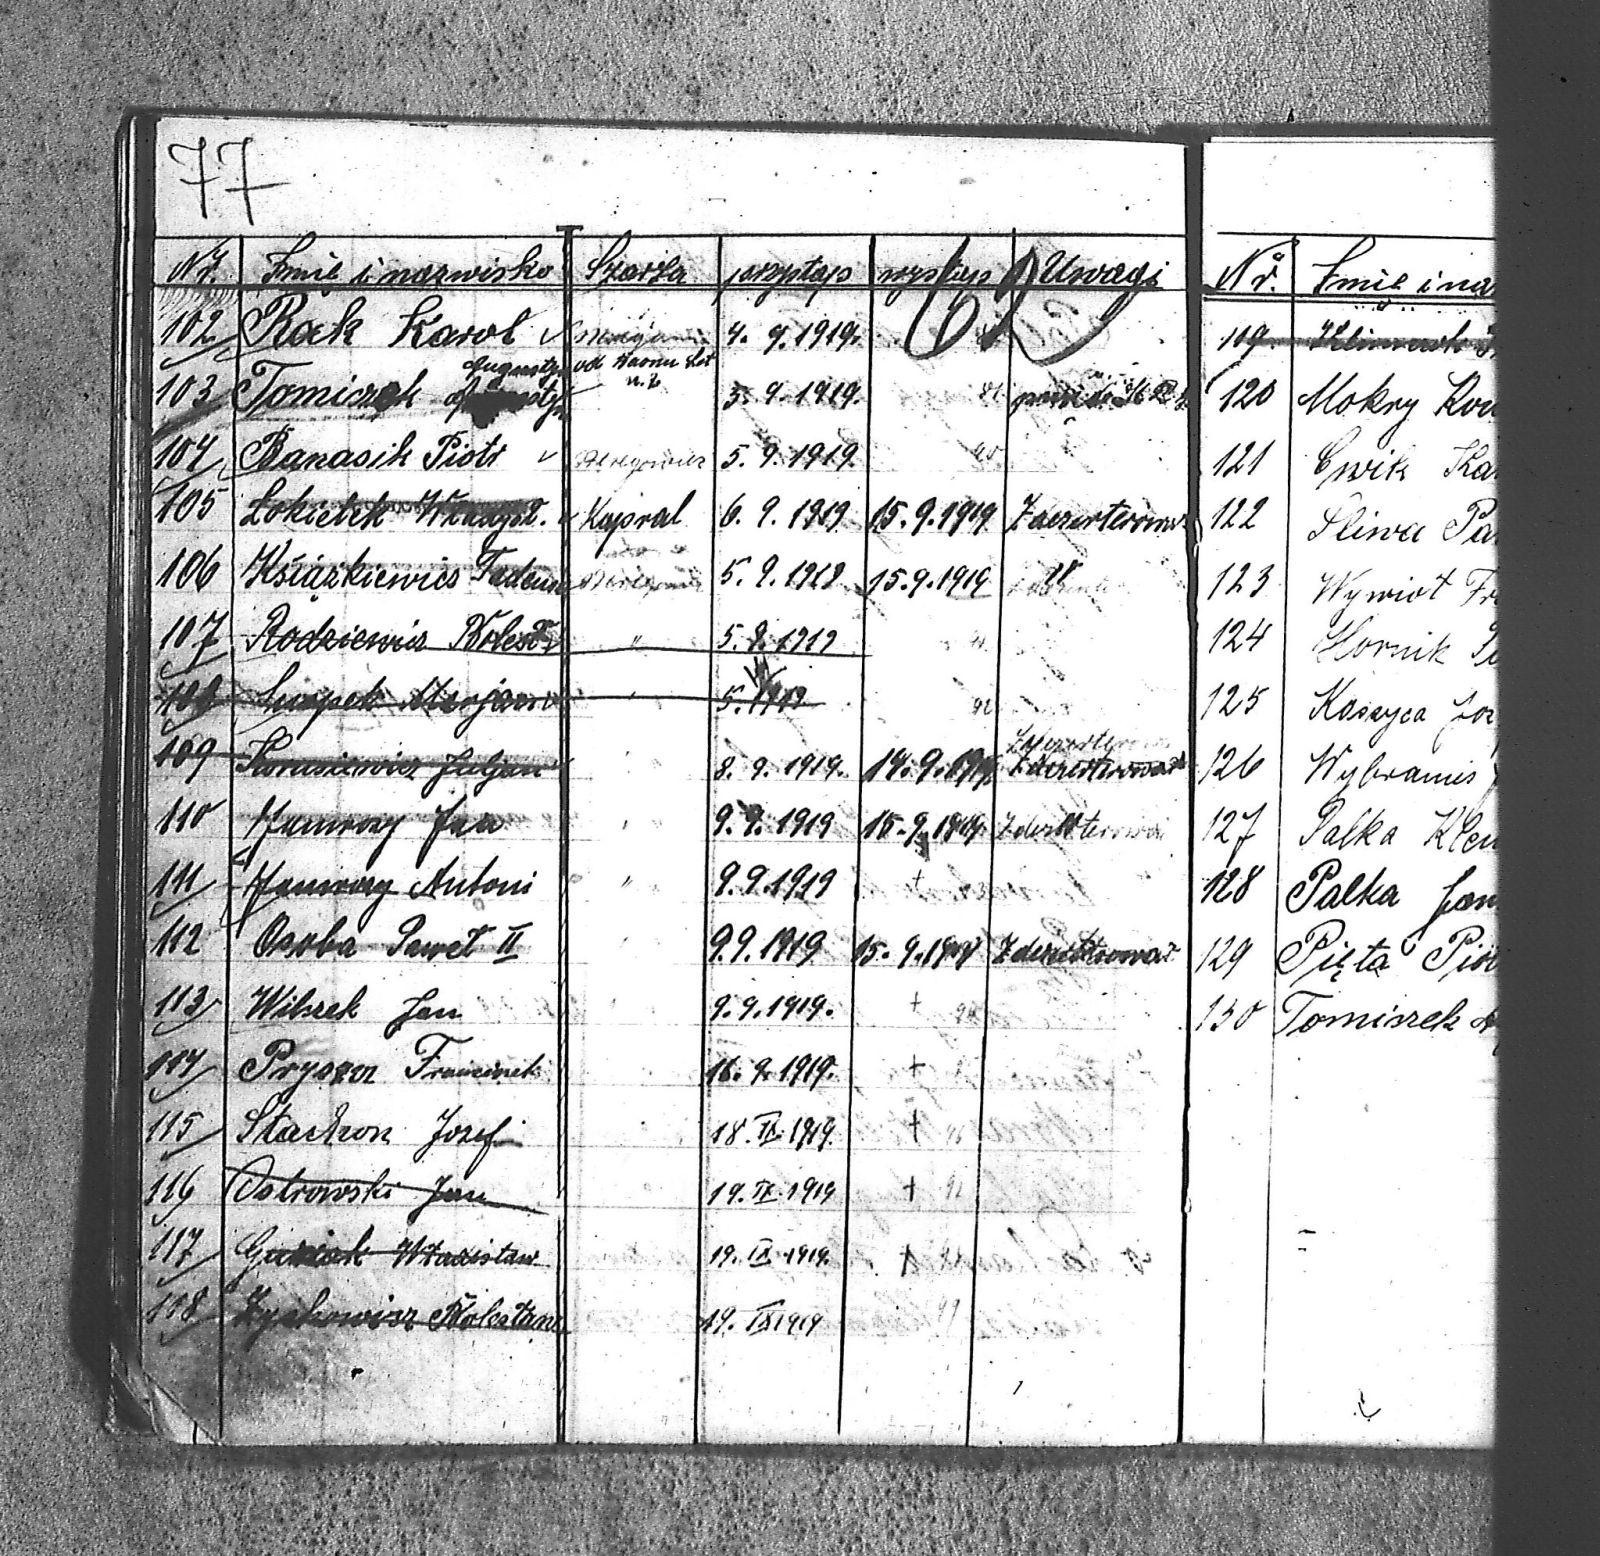 77
Nr. Imię i nazwisko Szarża przystąp wystąp Uwagi
62
102 Rak Karol 4. 9. 1919.
Augustyn od
103 Tomiczek 3. 9. 1919.
104 Banasik Piotr Szeregowiec 5. 9. 1919.
105 Lokietek Władysł. Kapral 6. 9. 1919 15. 9. 1919 Zdezerterował
106 Książkiewicz Tadeusz 5. 9. 1919 15. 9. 1919 "
107 Rodziewicz Bolesł. " 5. 9. 1919
108 Marjan " 5. 1919
109 Juljan " 8. 9. 1919. 14. 9. 1919. Zdezerterował
110 Jamrozy Jan " 9. 9. 1919 15. 9. 1919. Zdezerterował
111 Jamrozy Antoni " 9. 9. 1919 +
112 Osoba Paweł II " 9. 9. 1919 15. 9. 1919 Zdezerterował
113 Wilczek Jan " 9. 9. 1919. +
114 Pryszcz Franciszek 16. 9. 1919. +
115 Stachon Jozef 18. IX. 1919. +
116 Ostrowski Jan 19. IX. 1919 +
117 Władisław 19. IX. 1919. +
118 Zychowicz 19. IX 1919
Nr. Imię i na
119
120 Mokry
121 Cwik Ka
122 Sliwa Pa
123 Wywiot Fr
124 Hornik
125 Kaszyca Joz
126 Wybraniec
127 Palka Klem
128 Palka Jan
129 Pięta Piot
130 Tomiczek